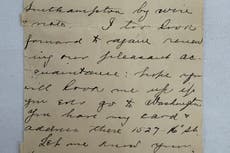 Southampton by wire
& note. I too look
forward to again renew
ing our pleasant ac-
quaintance: hope you
will look me up if
you go to Washington
You have my card &
address there 1527-16 St.
Let me know your